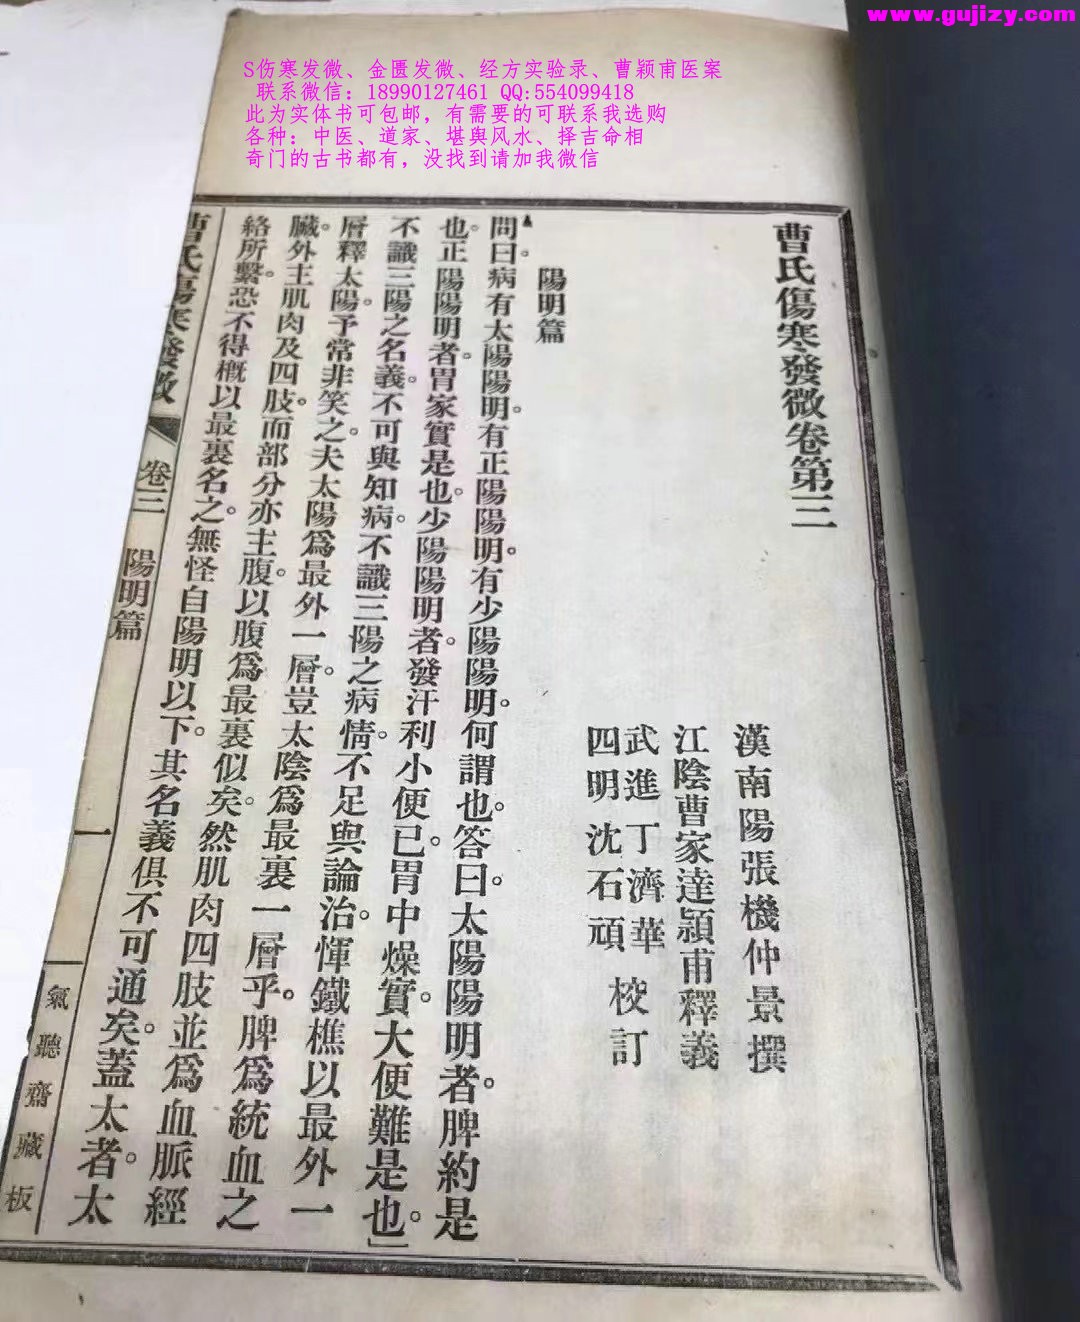 www.gujizy.com
S伤寒发微、金匮发微、经方实验录、曹颖甫医案
联系微信：18990127461 QQ:554099418
此为实体书可包邮，有需要的可联系我选购
各种：中医、道家、堪舆风水、择吉命相
奇门的古书都有，没找到请加我微信
曹氏傷寒發微卷第三
漢南陽張機仲景撰
江陰曹家達頴甫釋義
武進丁濟華
四明沈石頑
校訂
陽明篇
問曰。病有太陽陽明。有正陽陽明。有少陽陽明。何謂也。答曰。太陽陽明者。脾約是
也。正陽陽明者。胃家實是也。少陽陽明者。發汗利小便已。胃中燥實。大便難是也。」
不識三陽之名義。不可與知病。不識三陽之病情。不足與論治。惲鐵樵以最外一
層釋太陽。予常非笑之。夫太陽爲最外一層。豈太陰爲最裏一層乎。脾爲統血之
臟。外主肌肉及四肢。而部分亦主腹。以腹爲最裏似矣。然肌肉四肢並爲血脈經
絡所繫。恐不得概以最裏名之。無怪自陽明以下。其名義俱不可通矣。蓋太者。太
曹氏傷寒發微
卷三
陽明篇
一
氣聽齋藏板